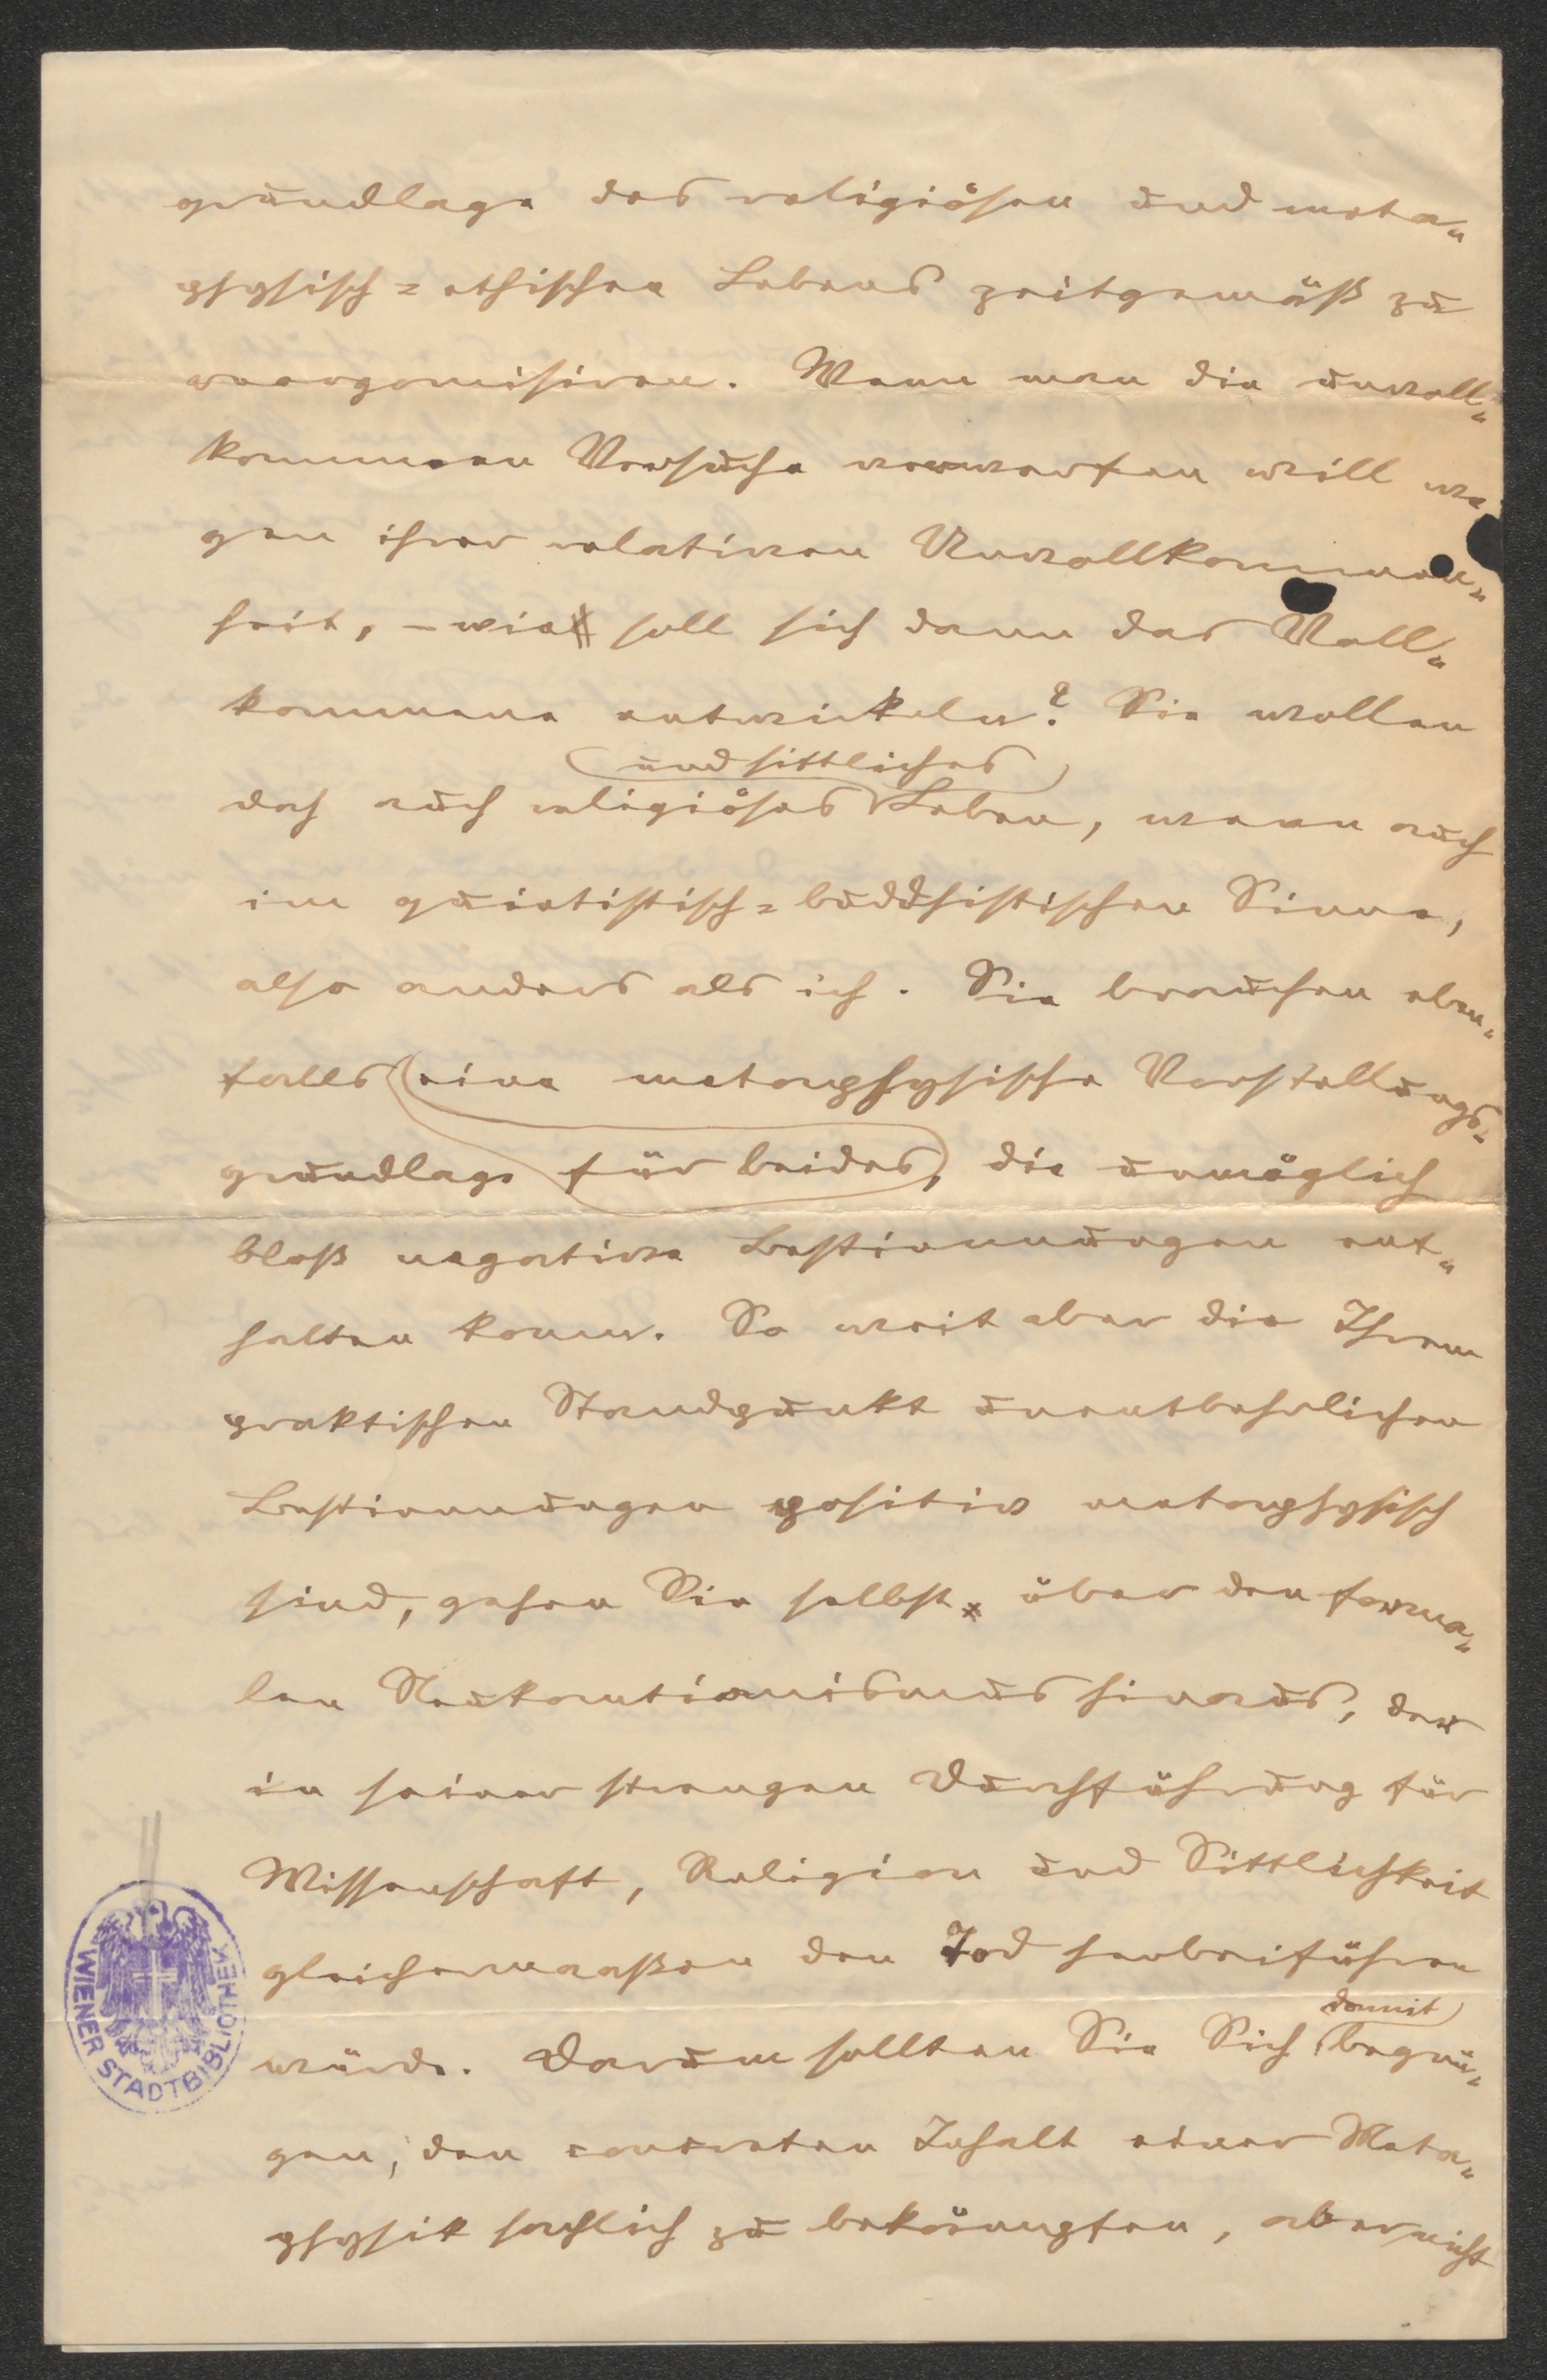 grundlage des religiösen und meta-
physisch-ethischen Lebens zeitgemäß zu
reorganisiren. Wenn man die unvoll-
kommenen Versuche verwerfen will we
gen ihrer relativen Unvollkommen-
heit, – wie soll sich dann das Voll-
kommene entwickeln? Sie wollen
und sittliches
doch auch religiöses Leben, wenn auch
im quietistisch-buddhistischen Sinne,
also anders als ich. Sie brauchen eben-
falls eine metaphysische Vorstellungs-
grundlage für beides, die unmöglich
bloß negative Bestimmungen ent-
halten kann. So weit aber die Ihrem
praktischen Standpunkt unentbehrlichen
Bestimmungen positiv metaphysisch
sind, gehen Sie selbst über den forma-
len Neukantianismus hinaus, der
in seiner strengen Durchführung für
Wissenschaft, Religion und Sittlichkeit
gleichermaaßen den Tod herbeiführen
damit
würde. Darum sollten Sie Sich begnü-
gen, den concreten Inhalt einer Meta-
physik sachlich zu bekämpfen, aber nicht
WIENER STADTBIBLIOTHEK